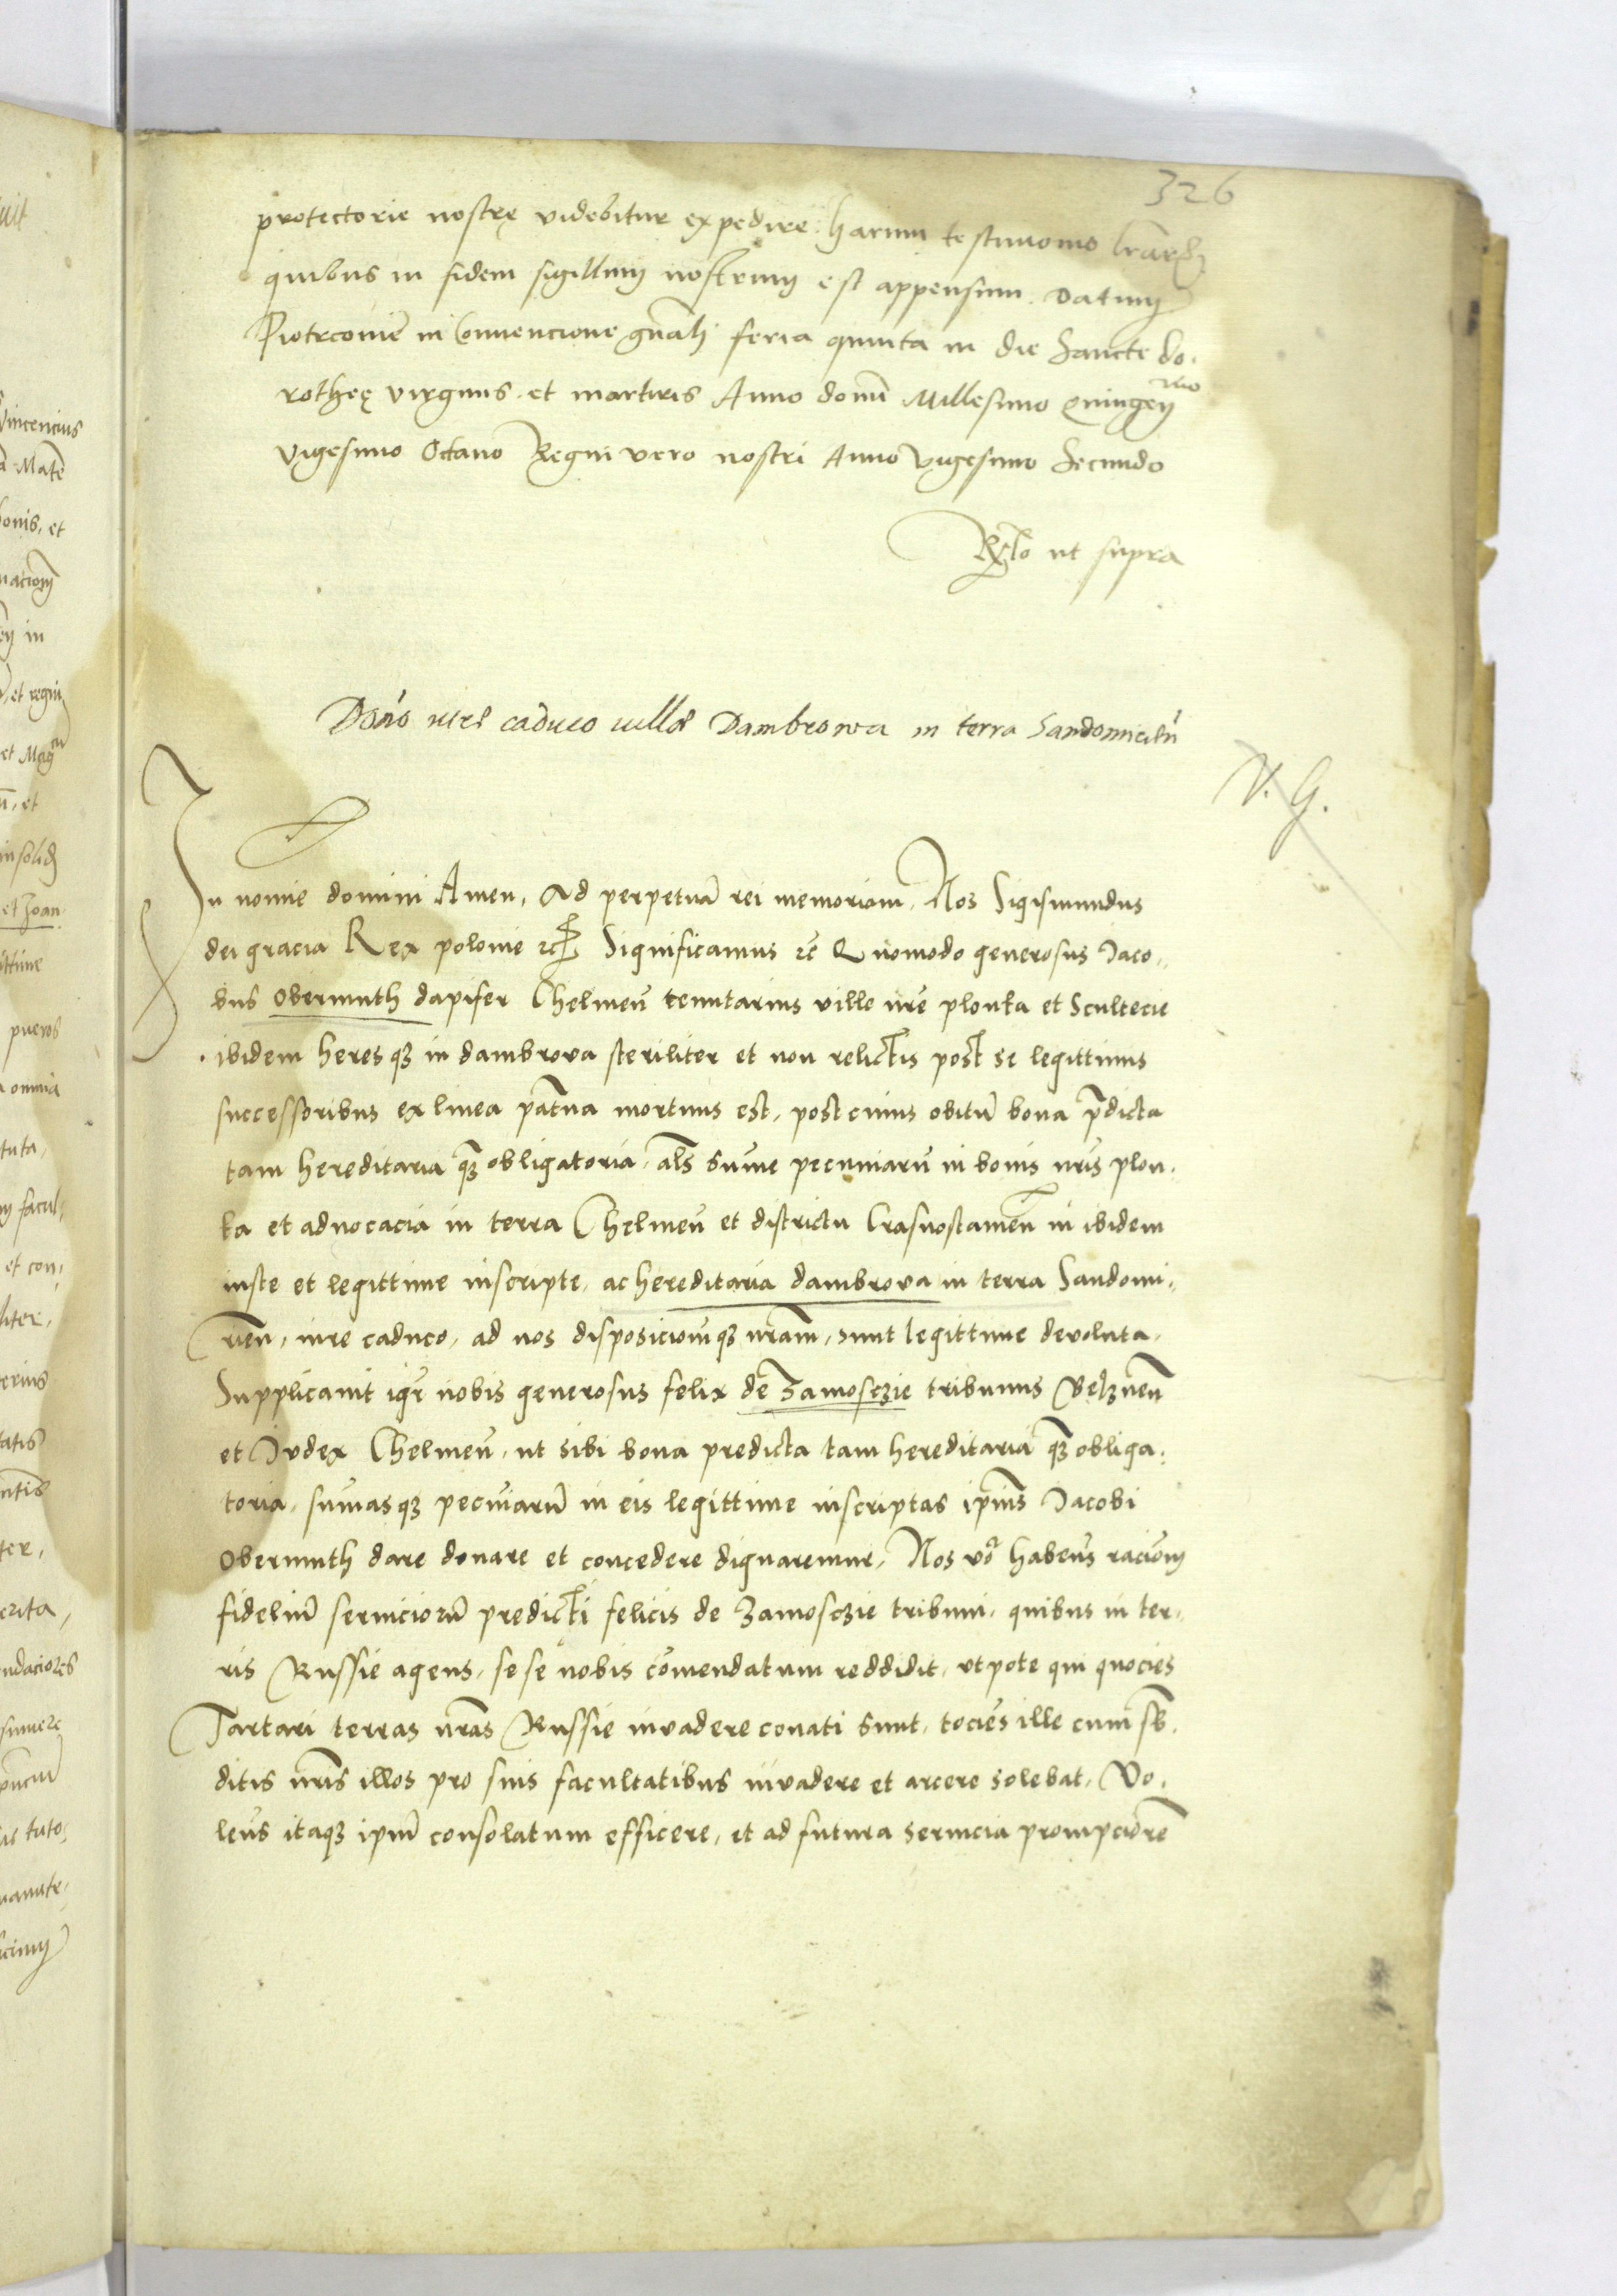 326
protectorie nostrę videbitur expedire harum testimonio lrarum
quibus in fidem sigillum nostrum est appensum. Datum
Piotrcovie in Convencione gnali feria quinta in die Sancte do.
rotheę virginis et martiris Anno domi Millesimo Quingenmo
vigesimo Octavo Regni vero nostri Anno vigesimo Secundo
Rlo ut supra
Donio iure caduco villae Dambrowa in terra Sandomirien
V. G.
In nomie domini Amen, Ad perpetua rei memoriam, Nos Sigismundus
dei gracia Rex polonie etc Significamus etc Quomodo generosus Jaco,,
bus Obermuth dapifer Chelmen tenutarius ville nre plonka et Scultecie
ibidem heres qz in dambrova steriliter et non relictis post se legittimis
successoribus ex linea patna mortuus est, post cuius obitu bona pdicta
tam hereditaria qz obligatoria, als sume pecuniaru in bonis nris plon,
ka et advocacia in terra Chelmen et districtu Crasnostamen in ibidem
iuste et legittime inscripte, ac hereditaria dambrova in terra Sandomi,
rien, iure caduco, ad nos disposicionqz nram, sunt legittime devoluta.
Supplicavit igr nobis generosus felix de Zamosczie tribunus Belznen
et Judex Chelmen, ut sibi bona predicta tam hereditaria qz obliga,
toria, sumasqz pecuniaru in eis legittime inscriptas ipius Jacobi
Obermuth dare donare et concedere dignaremur, Nos vo habens racionem
fideliu servicioru predicti felicis de Zamosczie tribuni, quibus in ter,
ris Russie agens, se se nobis comendatum reddidit, utpote qui quocies
Tartari terras nras Russie invadere conati sunt, tocies ille cum sb,
ditis nris illos pro suis facultatibus invadere et arcere solebat, Vo,
lens itaqz ipm consolatum efficere, et ad futura servicia prompciore